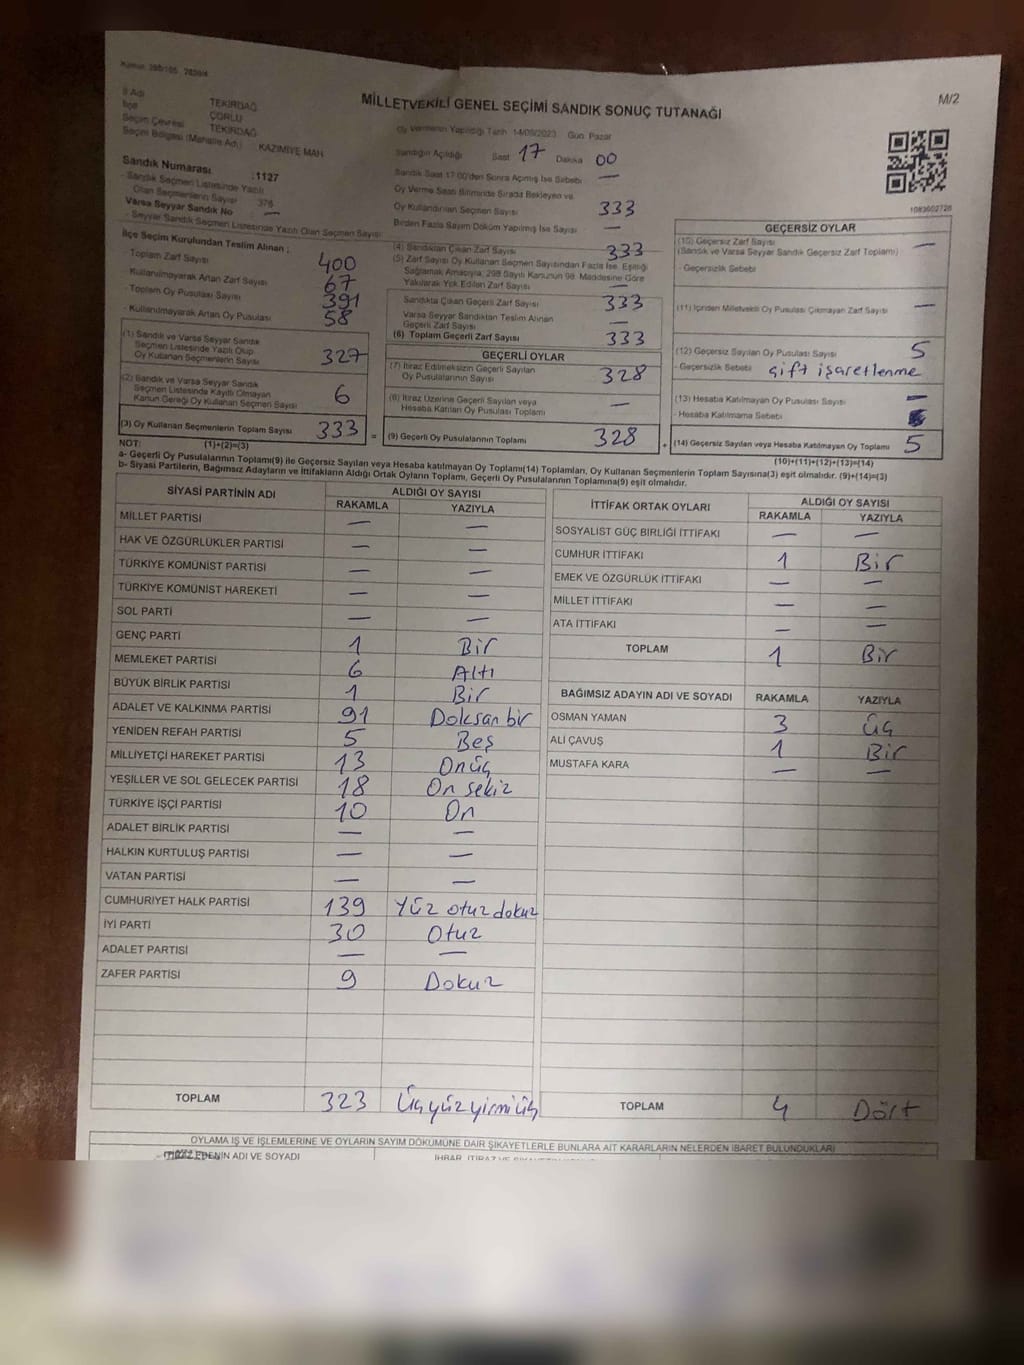 M/2
MİLLETVEKİLİ GENEL SEÇİMİ SANDIK SONUÇ TUTANAĞI
İl Adı TEKİRDAĞ
İlçe ÇORLU
Seçim Çevresi TEKİRDAĞ
Seçim Bölgesi (Mahalle Adı) : KAZIMİYE MAH.
Sandık Numarası :1127
- Sandık Seçmen Listesinde Yazılı
Olan Seçmenlerin Sayısı 376
Varsa Seyyar Sandık No —
- Seyyar Sandık Seçmen Listesinde Yazılı Olan Seçmen Sayısı
Oy Vermenin Yapıldığı Tarih 14/05/2023 Gün Pazar
Sandığın Açıldığı Saat 17 Dakika 00
Sandık Saat 17:00'den Sonra Açılmış İse Sebebi —
Oy Verme Saati Bitiminde Sırada Bekleyen ve
Oy Kullandırılan Seçmen Sayısı 333
Birden Fazla Sayım Döküm Yapılmış İse Sayısı —
1083602728
İlçe Seçim Kurulundan Teslim Alınan ;
- Toplam Zarf Sayısı 400
- Kullanılmayarak Artan Zarf Sayısı 67
- Toplam Oy Pusulası Sayısı 391
- Kullanılmayarak Artan Oy Pusulası 58
(1) Sandık ve Varsa Seyyar Sandık
Seçmen Listesinde Yazılı Olup
Oy Kullanan Seçmenlerin Sayısı 327
(2) Sandık ve Varsa Seyyar Sandık
Seçmen Listesinde Kayıtlı Olmayan
Kanun Gereği Oy Kullanan Seçmen Sayısı 6
(3) Oy Kullanan Seçmenlerin Toplam Sayısı 333
(4) Sandıktan Çıkan Zarf Sayısı 333
(5) Zarf Sayısı Oy Kullanan Seçmen Sayısından Fazla İse, Eşitliği
Sağlamak Amacıyla, 298 Sayılı Kanunun 98. Maddesine Göre
Yakılarak Yok Edilen Zarf Sayısı —
Sandıkta Çıkan Geçerli Zarf Sayısı 333
Varsa Seyyar Sandıktan Teslim Alınan
Geçerli Zarf Sayısı —
(6) Toplam Geçerli Zarf Sayısı 333
GEÇERLİ OYLAR
(7) İtiraz Edilmeksizin Geçerli Sayılan
Oy Pusulalarının Sayısı 328
(8) İtiraz Üzerine Geçerli Sayılan veya
Hesaba Katılan Oy Pusulası Toplamı —
= (9) Geçerli Oy Pusulalarının Toplamı 328
GEÇERSİZ OYLAR
(10) Geçersiz Zarf Sayısı —
(Sandık ve Varsa Seyyar Sandık Geçersiz Zarf Toplamı)
- Geçersizlik Sebebi
(11) İçinden Milletvekili Oy Pusulası Çıkmayan Zarf Sayısı —
(12) Geçersiz Sayılan Oy Pusulası Sayısı 5
- Geçersizlik Sebebi çift işaretlenme
(13) Hesaba Katılmayan Oy Pusulası Sayısı —
- Hesaba Katılmama Sebebi
+ (14) Geçersiz Sayılan veya Hesaba Katılmayan Oy Toplamı 5
NOT: (1)+(2)=(3)
(10)+(11)+(12)+(13)=(14)
a- Geçerli Oy Pusulalarının Toplamı(9) ile Geçersiz Sayılan veya Hesaba katılmayan Oy Toplamı(14) Toplamları, Oy Kullanan Seçmenlerin Toplam Sayısına(3) eşit olmalıdır. (9)+(14)=(3)
b- Siyasi Partilerin, Bağımsız Adayların ve İttifakların Aldığı Ortak Oyların Toplamı, Geçerli Oy Pusulalarının Toplamına(9) eşit olmalıdır.
SİYASİ PARTİNİN ADI ALDIĞI OY SAYISI
RAKAMLA YAZIYLA
MİLLET PARTİSİ — —
HAK VE ÖZGÜRLÜKLER PARTİSİ — —
TÜRKİYE KOMÜNİST PARTİSİ — —
TÜRKİYE KOMÜNİST HAREKETİ — —
SOL PARTİ — —
GENÇ PARTİ 1 Bir
MEMLEKET PARTİSİ 6 Altı
BÜYÜK BİRLİK PARTİSİ 1 Bir
ADALET VE KALKINMA PARTİSİ 91 Doksan bir
YENİDEN REFAH PARTİSİ 5 Beş
MİLLİYETÇİ HAREKET PARTİSİ 13 Onüç
YEŞİLLER VE SOL GELECEK PARTİSİ 18 On sekiz
TÜRKİYE İŞÇİ PARTİSİ 10 On
ADALET BİRLİK PARTİSİ — —
HALKIN KURTULUŞ PARTİSİ — —
VATAN PARTİSİ — —
CUMHURİYET HALK PARTİSİ 139 Yüz otuz dokuz
İYİ PARTİ 30 Otuz
ADALET PARTİSİ — —
ZAFER PARTİSİ 9 Dokuz
TOPLAM 323 Üçyüzyirmiüç
İTTİFAK ORTAK OYLARI ALDIĞI OY SAYISI
RAKAMLA YAZIYLA
SOSYALİST GÜÇ BİRLİĞİ İTTİFAKI — —
CUMHUR İTTİFAKI 1 Bir
EMEK VE ÖZGÜRLÜK İTTİFAKI — —
MİLLET İTTİFAKI — —
ATA İTTİFAKI — —
TOPLAM 1 Bir
BAĞIMSIZ ADAYIN ADI VE SOYADI RAKAMLA YAZIYLA
OSMAN YAMAN 3 Üç
ALİ ÇAVUŞ 1 Bir
MUSTAFA KARA — —
TOPLAM 4 Dört
OYLAMA İŞ VE İŞLEMLERİNE VE OYLARIN SAYIM DÖKÜMÜNE DAİR ŞİKAYETLERLE BUNLARA AİT KARARLARIN NELERDEN İBARET BULUNDUKLARI
EDENİN ADI VE SOYADI